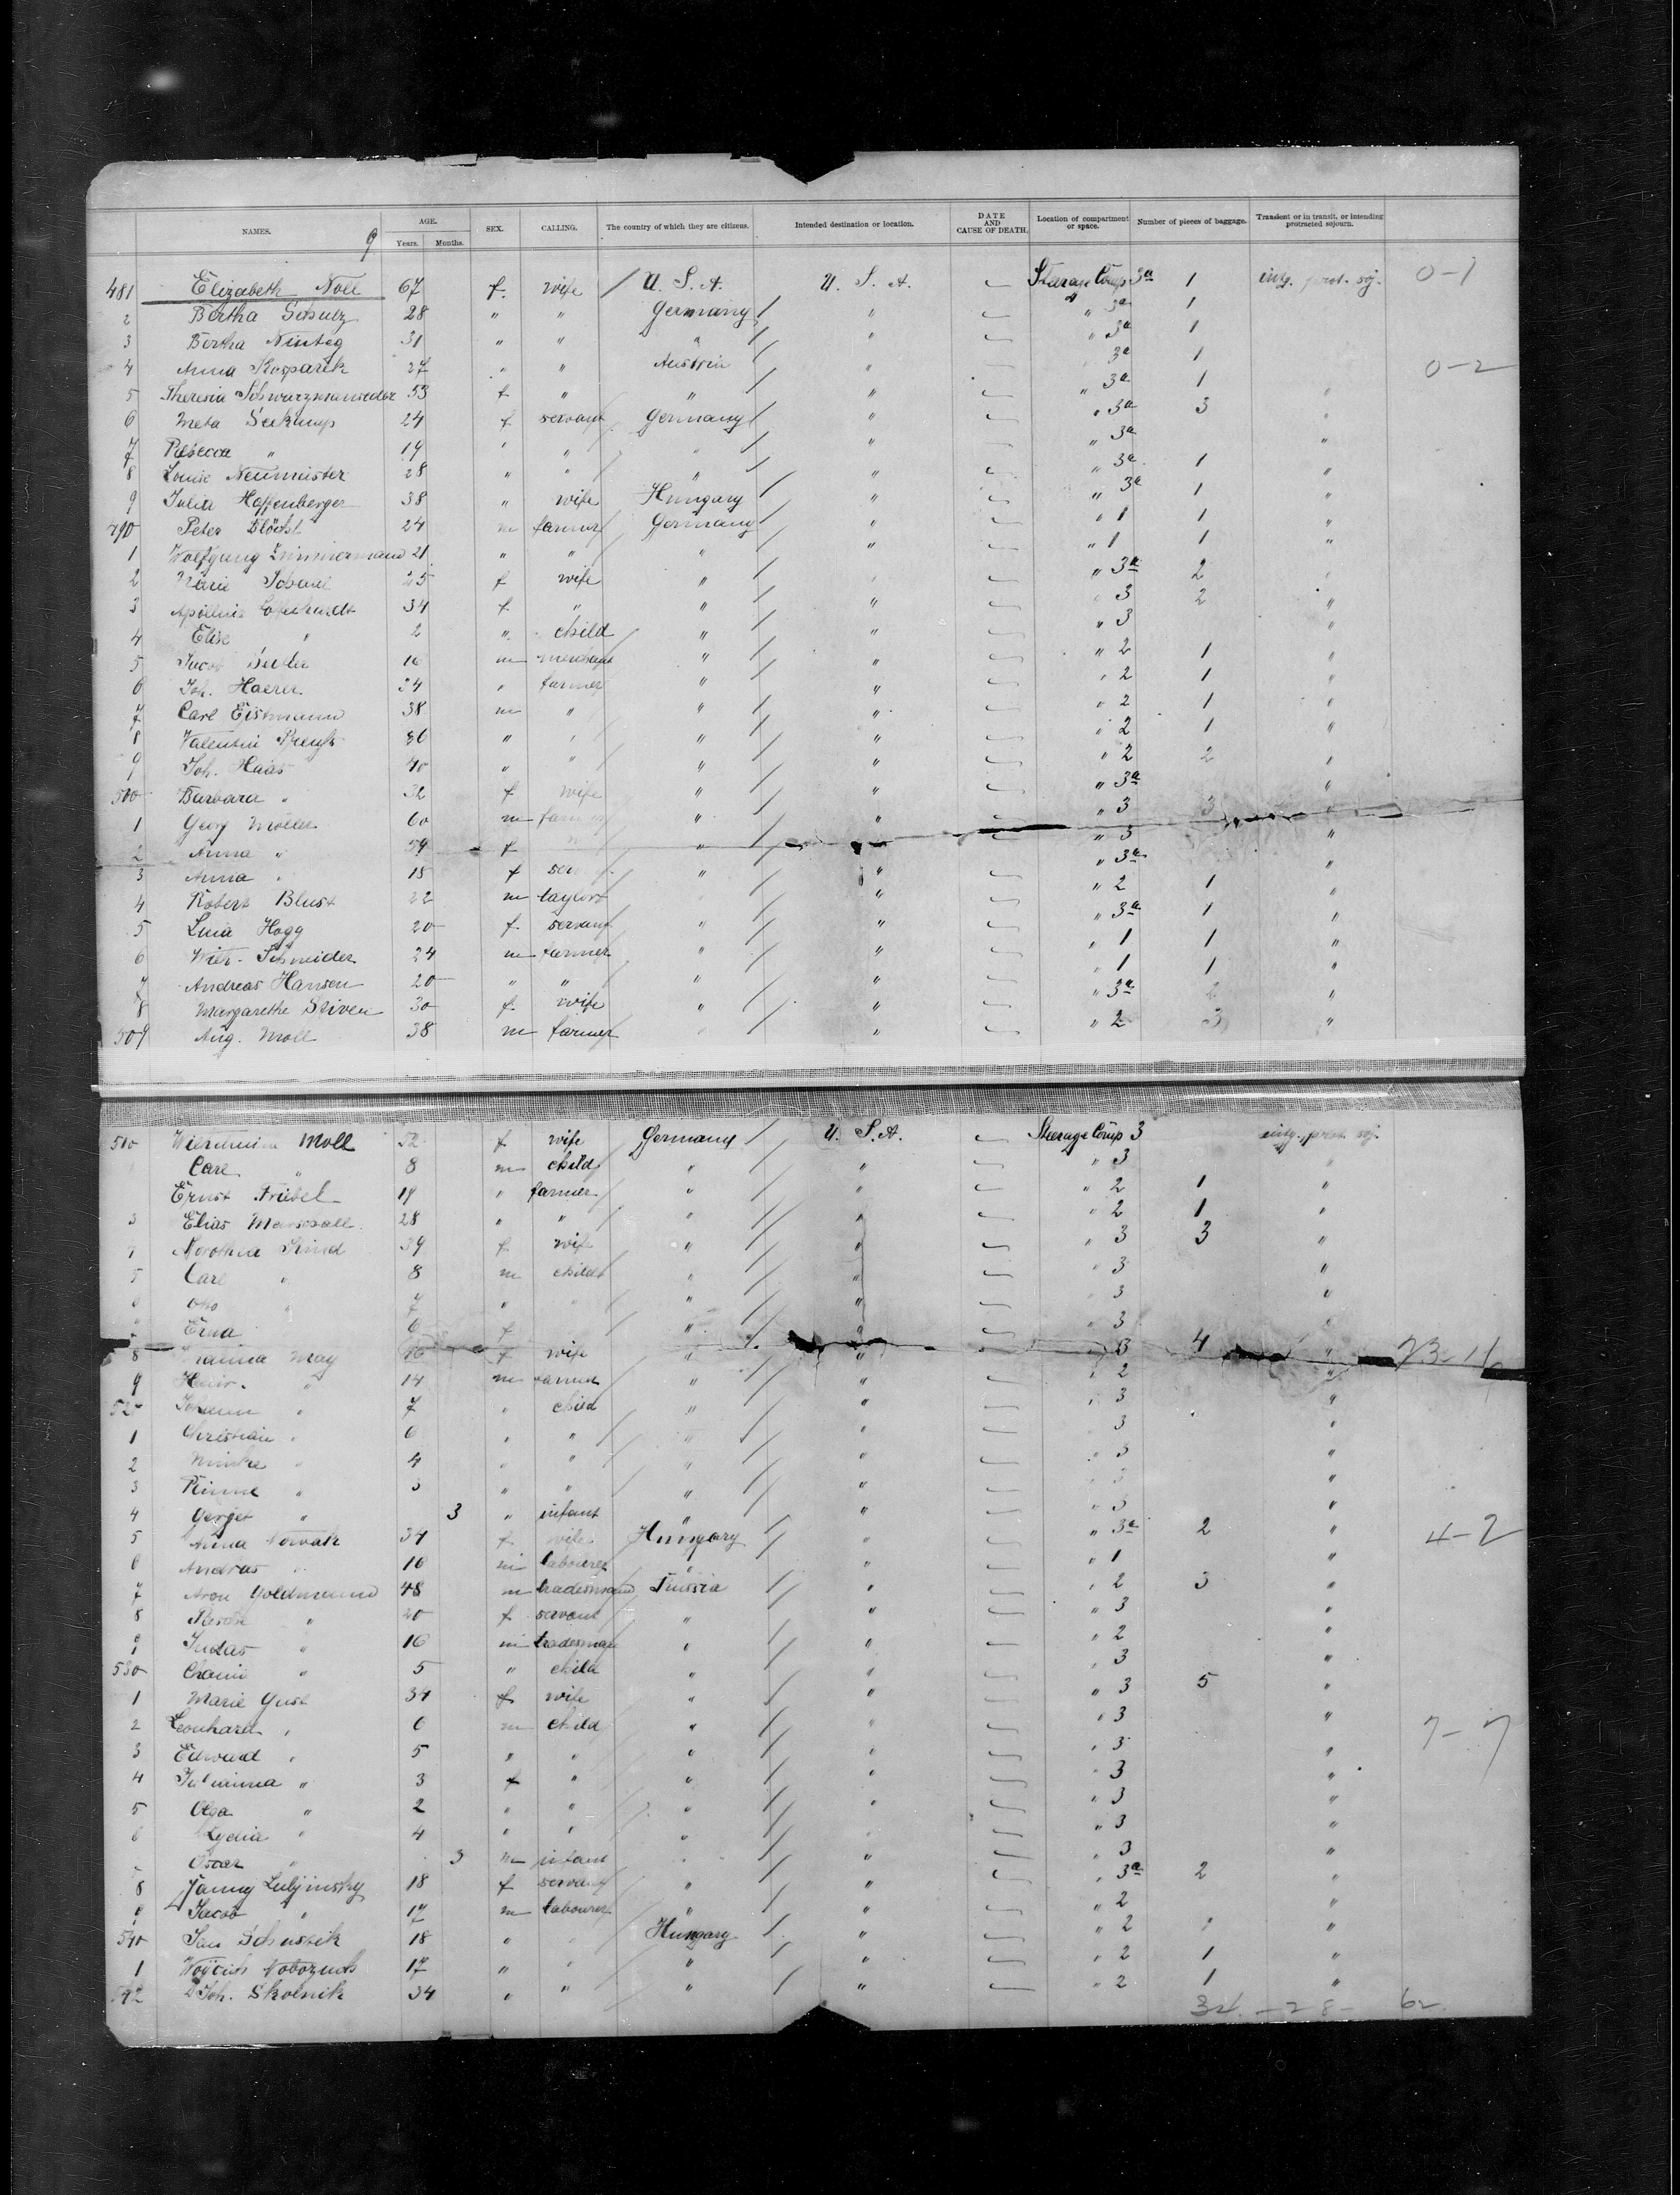 NAMES. 9 AGE. Years. Months. SEX. CALLING. The country of which they are citizens. Intended destination or location. DATE AND CAUSE OF DEATH. Location of compartment or space. Number of pieces of baggage. Transient or in transit, or intending protracted sojourn.
481 Elizabeth Noll 67 f. wife U. S. A. U. S. A. Steerage Comp 3a 1 intg. prot. soj. 0-1
2 Bertha Schulz 28 " " Germany " " 3a 1
3 Bertha 31 " " " " " 3a 1
4 Anna 27 " " Austria " 3a 1 0-2
5 Theresia 53 f " " " " 3a 1 "
6 Meta Seekamp 24 f servant Germany " " 3a 3 "
7 Rebecca " 19 " " " " " 3a "
8 Louise Neumeister 28 " " " " " 3a 1 "
9 Julia Hoffenberger 38 " wife Hungary " " 3a 1 "
490 Peter 24 m farmer Germany " " 1 1 "
1 Wolfgang Zimmermann 21 " " " " " 1 1 "
2 Marie 25 f wife " " " 3a 2 "
3 34 f " " " " 3 2 "
4 Elise " 2 " child " " " 3 "
5 Jacob 16 m merchant " " " 2 1 "
6 Joh. Haerer 34 " farmer " " " 2 1 "
7 Carl Eistmann 38 m " " " " 2 1 "
8 Valentin " " " " " 2 1 "
9 Joh. Haas 40 " " " " " 2 2 "
500 Barbara " 32 f wife " " " 3a "
1 Georg 60 m farmer " " " 3 3 "
2 Anna " 59 f " " " 3 "
3 Anna " 18 f " " " 3a "
4 Robert Blust 22 m taylor " " " 2 1 "
5 Lina Hogg 20 f. servant " " " 3a 1 "
6 Schneider 24 m farmer " " " 1 1 "
7 Andreas Hansen 20 " " " " " 1 1 "
8 Margarethe 30 f. wife " " " 3a 2 "
509 Aug. Moll 38 m farmer " " " 2 3 "
510 Moll f wife Germany U. S. A. Steerage Comp 3 intg. prot. soj.
Carl " 8 m child " " " 3 "
Ernst 19 " farmer " " " 2 1 "
3 Elias 28 " " " " " 2 1 "
39 f wife " " " 3 3 "
5 Carl " 8 m child " " " 3 "
Otto " 7 " " " " " 3 "
Erna 6 f " " " 3 "
8 May f wife " " " 3 4 " 23-11
9 Heinr. " 14 m farmer " " " 2 "
520 " 7 " child " " " 3 "
1 Christian " 6 " " " " " 3 "
2 " 4 " " " " " 3 "
3 " 3 " " " " " 3 "
4 " 3 " infant " " " 3 "
5 Anna 34 f wife Hungary " " 3a 2 " 4-2
6 Andras " 16 m labourer " " " 1 "
7 Aron Goldmann 48 m tradesman Russia " " 2 3 "
8 " 20 f servant " " " 3 "
9 Judas " 16 m tradesman " " " 2 "
530 " 5 " child " " " 3 "
1 Marie Gust 34 f wife " " " 3 5 "
2 Leonhard " 6 m child " " " 3 " 7-7
3 Edward " 5 " " " " " 3 "
4 Julianna " 3 f " " " " 3 "
5 Olga " 2 " " " " " 3 "
6 Lydia " 4 " " " " " 3 "
Oscar " 3 m infant " " " 3 "
8 Fanny 18 f servant " " " 3a 2 "
9 Jacob " 17 m labourer " " " 2 "
540 Jan 18 " " Hungary " " 2 1 "
1 17 " " " " " 2 1 "
542 Joh. Skolnik 34 " " " " " 2 1 "
34 - 28 - 62